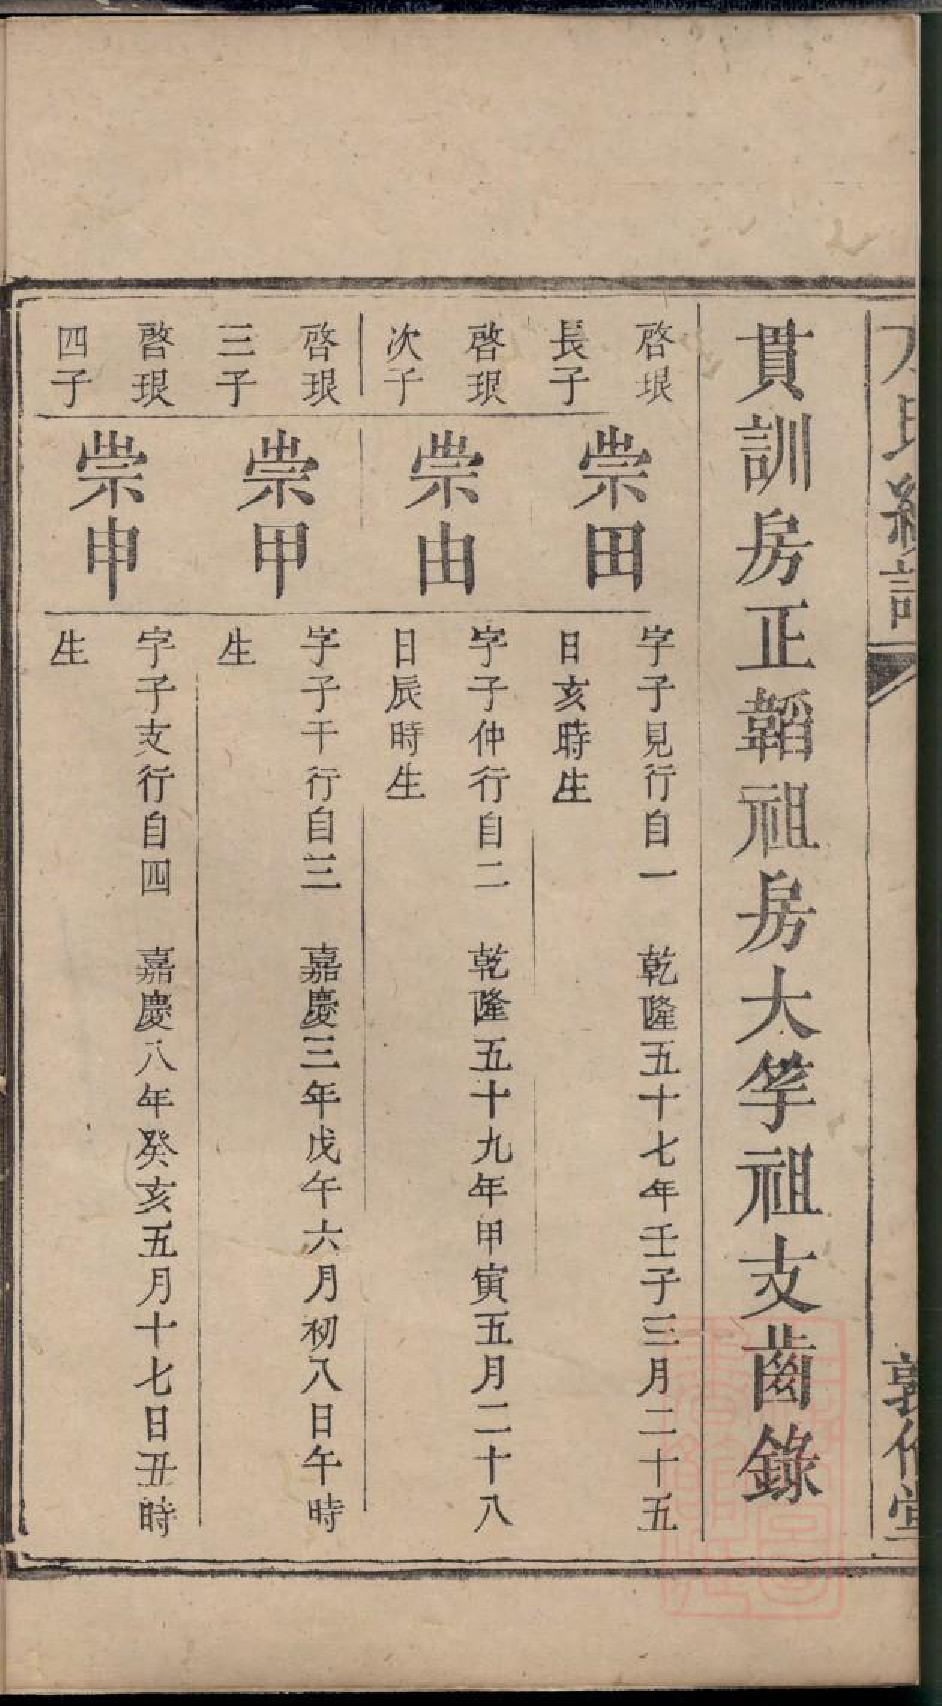 貫訓房正韜祖房大斈祖支齒錄
啓珢
長子
崇田
字子見行自一　乾隆五十七年壬子三月二十五
日亥時生
啓珢
次子
崇由
字子仲行自二　乾隆五十九年甲寅五月二十八
日辰時生
啓珢
三子
崇甲
字子干行自三　嘉慶三年戊午六月初八日午時
生
啓珢
四子
崇申
字子支行自四　嘉慶八年癸亥五月十七日丑時
生